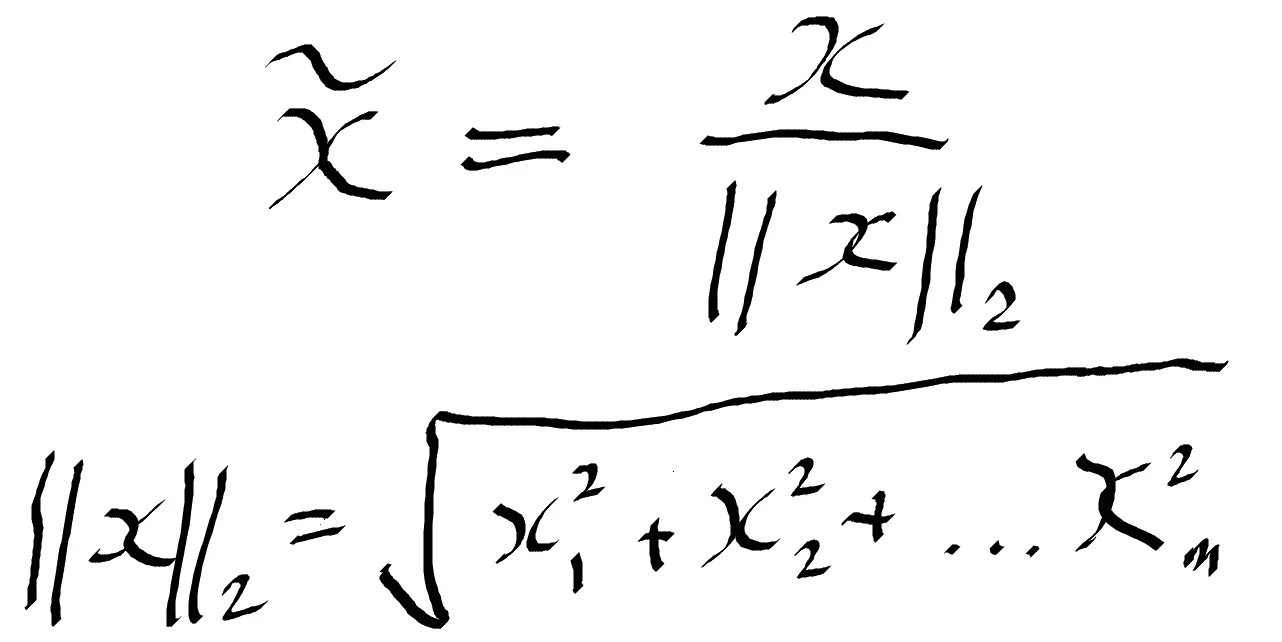 x̃ = x / ||x||₂
||x||₂ = √(x₁² + x₂² + ... xₘ²)